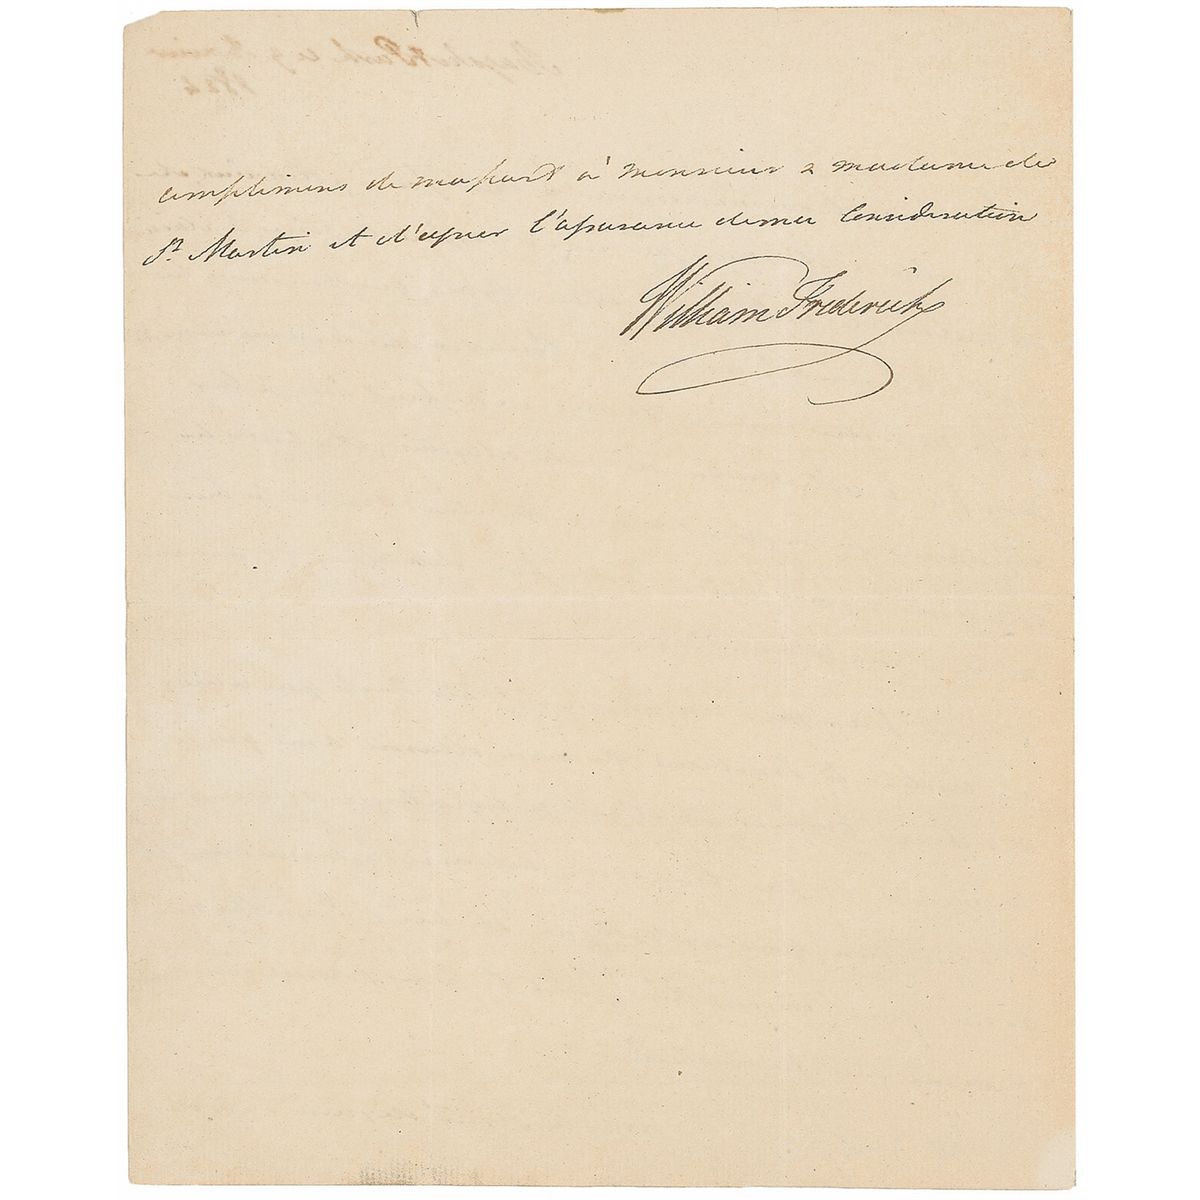 complimens de ma part à monsieur & madame de
St. Martin et d'agréer l'assurance de ma Consideration
William Frederick